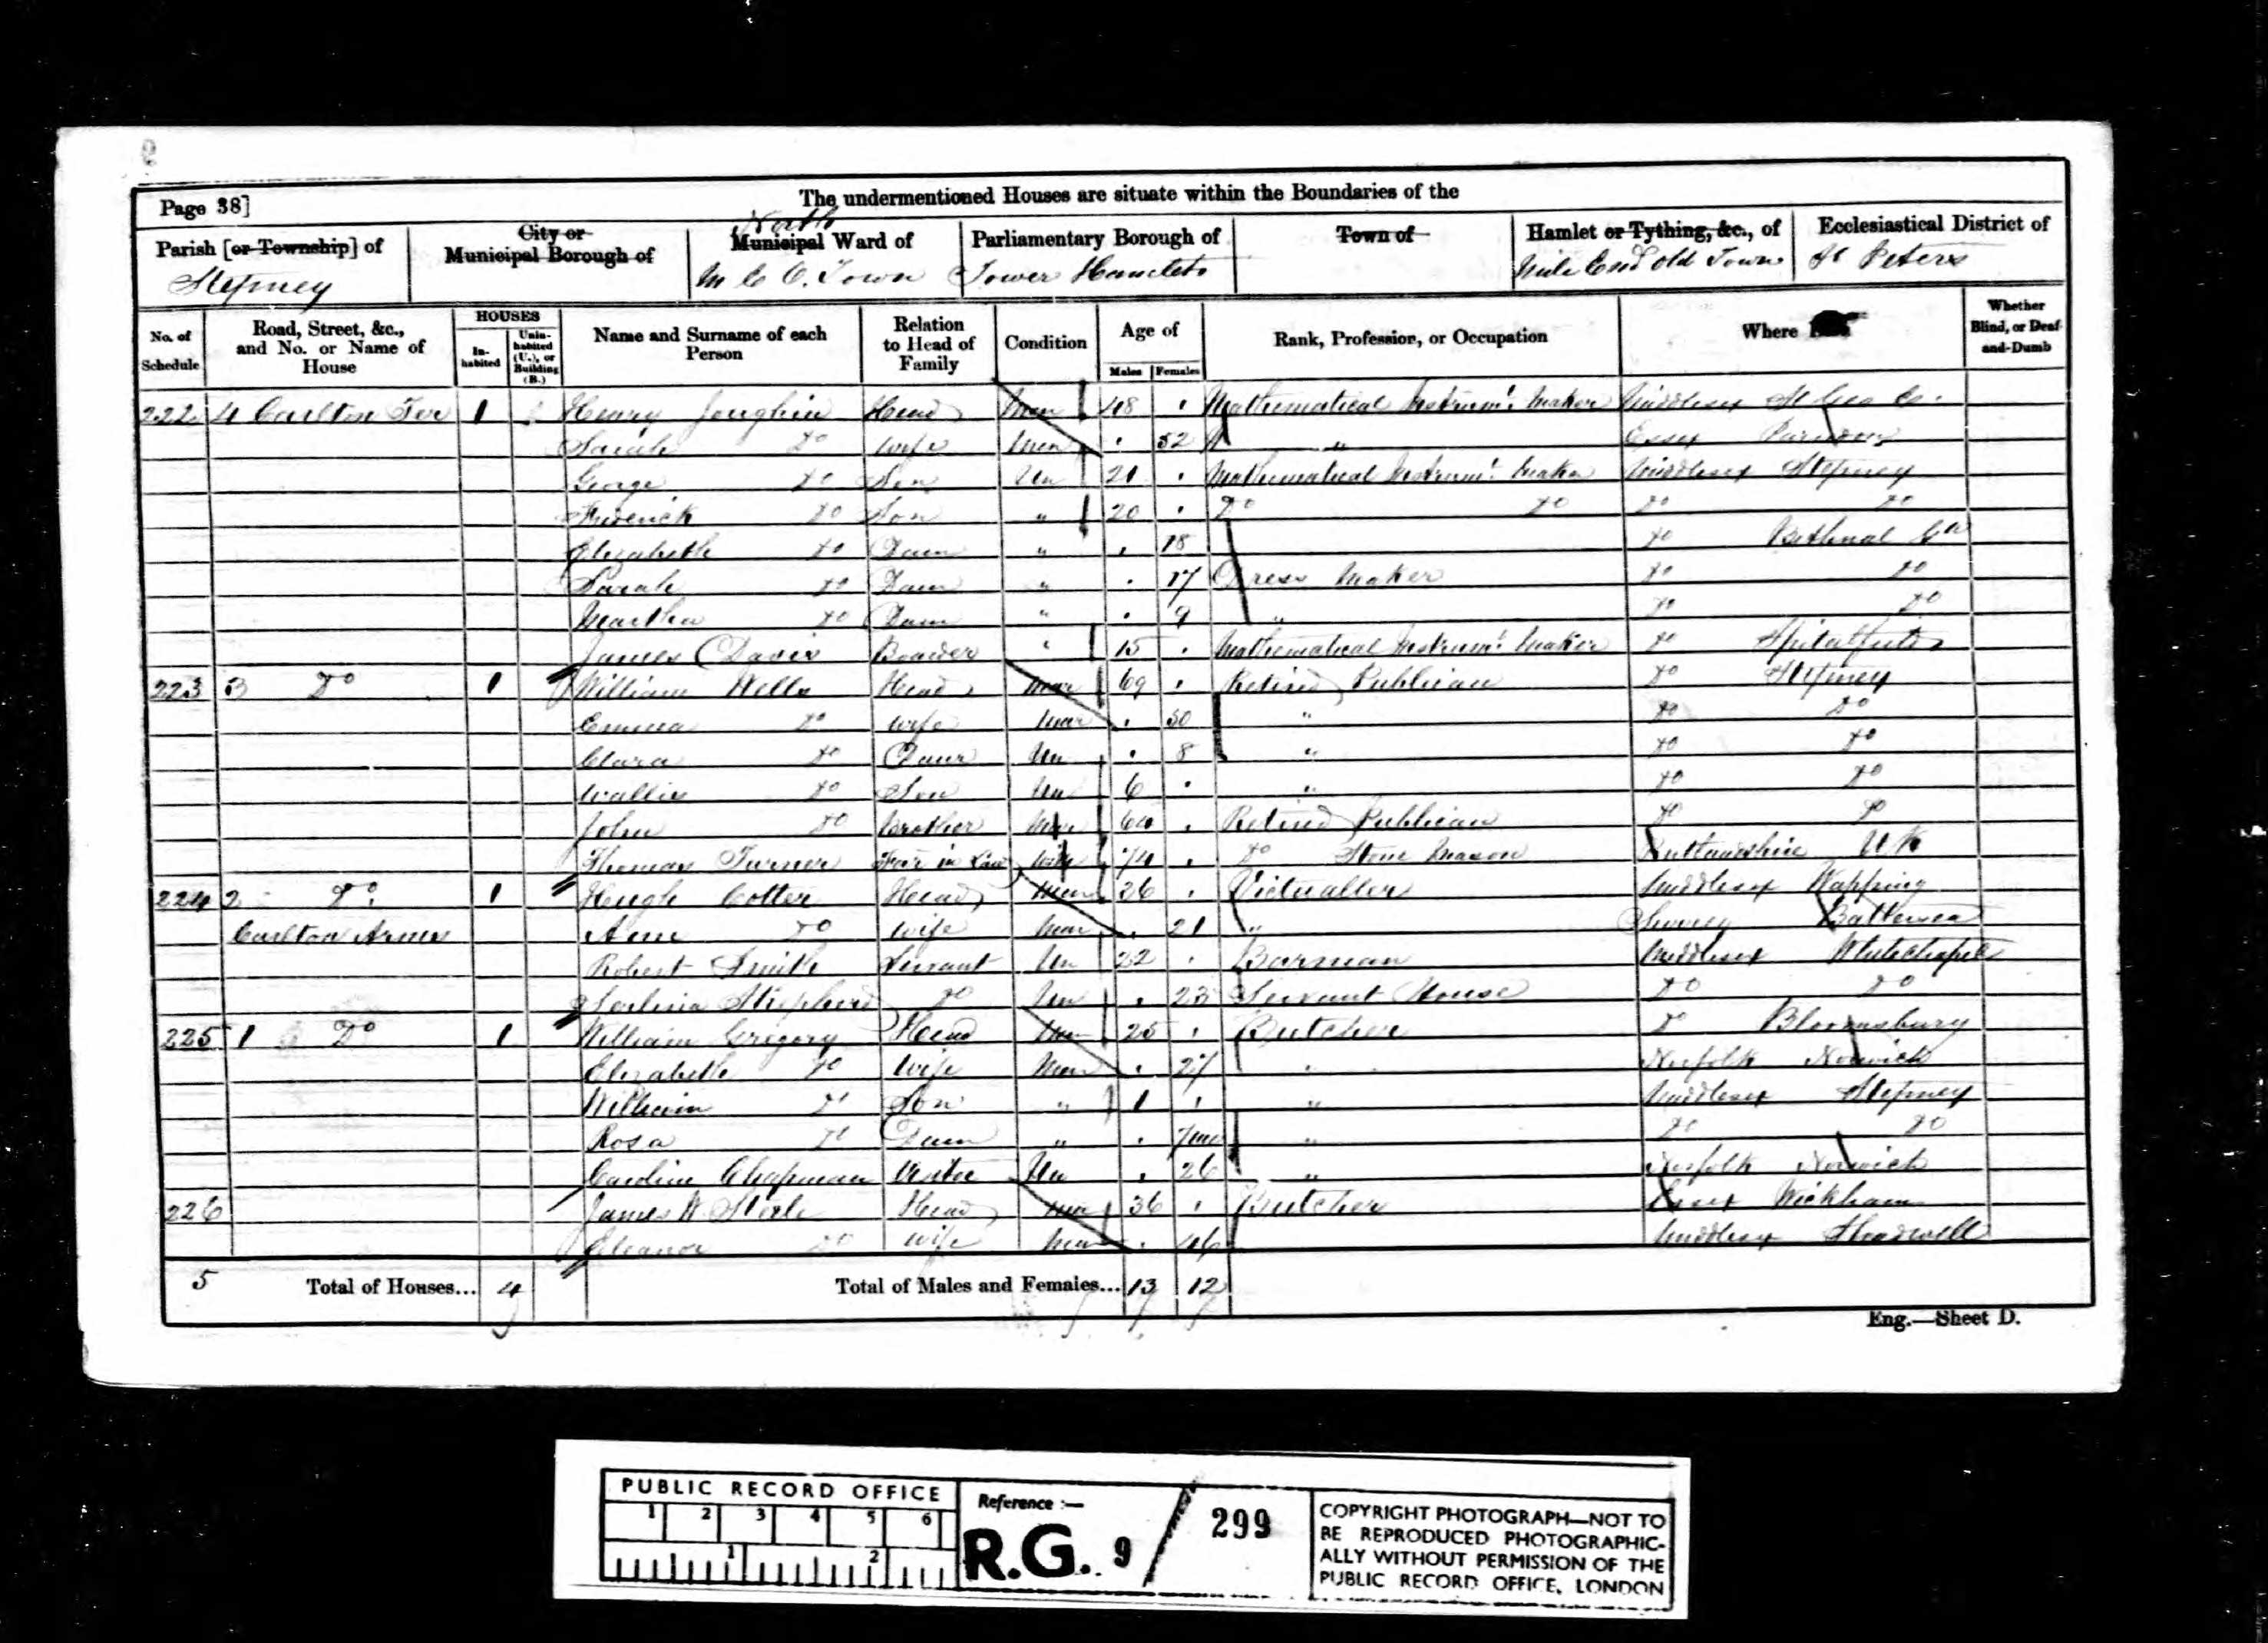 Page 38] The undermentioned Houses are situate within the Boundaries of the
Parish [or Township] of Stepney
City or Municipal Borough of
North Municipal Ward of M E O. Town
Parliamentary Borough of Tower Hamlets
Town of
Hamlet or Tything, &c., of Mile End Old Town
Ecclesiastical District of St Peters
No. of Schedule
Road, Street, &c., and No. or Name of House
HOUSES
In-habited
Unin-habited (U.), or Building (B.)
Name and Surname of each Person
Relation to Head of Family
Condition
Age of
Males Females
Rank, Profession, or Occupation
Where
Whether Blind, or Deaf-and-Dumb
222 4 Carlton Ter 1 Henry Joughin Head Mar 48 Mathematical Instrumt Maker Middlesex St Geo
Sarah Do Wife Mar 52 " Essex
George Do Son Un 21 Mathematical Instrumt Maker Middlesex Stepney
Frederick Do Son " 20 Do Do Do Do
Elizabeth Do Daur " 18 Do Bethnal Gn
Sarah Do Daur " 17 Dress Maker Do Do
Martha Do Daur " 9 " Do Do
James Davis Boarder " 15 Mathematical Instrumt Maker Do Spitalfields
223 3 Do 1 William Wells Head Mar 69 Retired Publican Do Stepney
Emma Do Wife Mar 30 " Do Do
Clara Do Daur Un 8 " Do Do
Do Son Un 6 " Do Do
John Do Brother 60 Retired Publican Do Do
Thomas Turner in Law 74 Do Stone Mason Rutlandshire U K
224 2 Do 1 Hugh Cotter Head Mar 36 Victualler Middlesex Wapping
Carlton Arms Ann Do Wife Mar 21 " Surrey Battersea
Robert Smith Servant Un 22 Barman Middlesex Whitechapel
Do Un 23 Servant House Do Do
225 1 Do 1 William Gregory Head Mar 25 Butcher Do Bloomsbury
Elizabeth Do Wife Mar 27 Norfolk Norwich
William Do Son " 1 " Middlesex Stepney
Rosa Do Daur " 7mo " Do Do
Caroline Chapman Visitor Un 26 " Norfolk Norwich
226 James W Head Mar 36 Butcher Essex Wickham
Eleanor Do Wife Mar 46 Middlesex Shadwell
5 Total of Houses... 4 Total of Males and Females... 13 12
Eng.—Sheet D.
PUBLIC RECORD OFFICE
1 2 3 4 5 6
1 2
Reference :—
R.G. 9 / 299
COPYRIGHT PHOTOGRAPH—NOT TO
BE REPRODUCED PHOTOGRAPHIC-
ALLY WITHOUT PERMISSION OF THE
PUBLIC RECORD OFFICE, LONDON